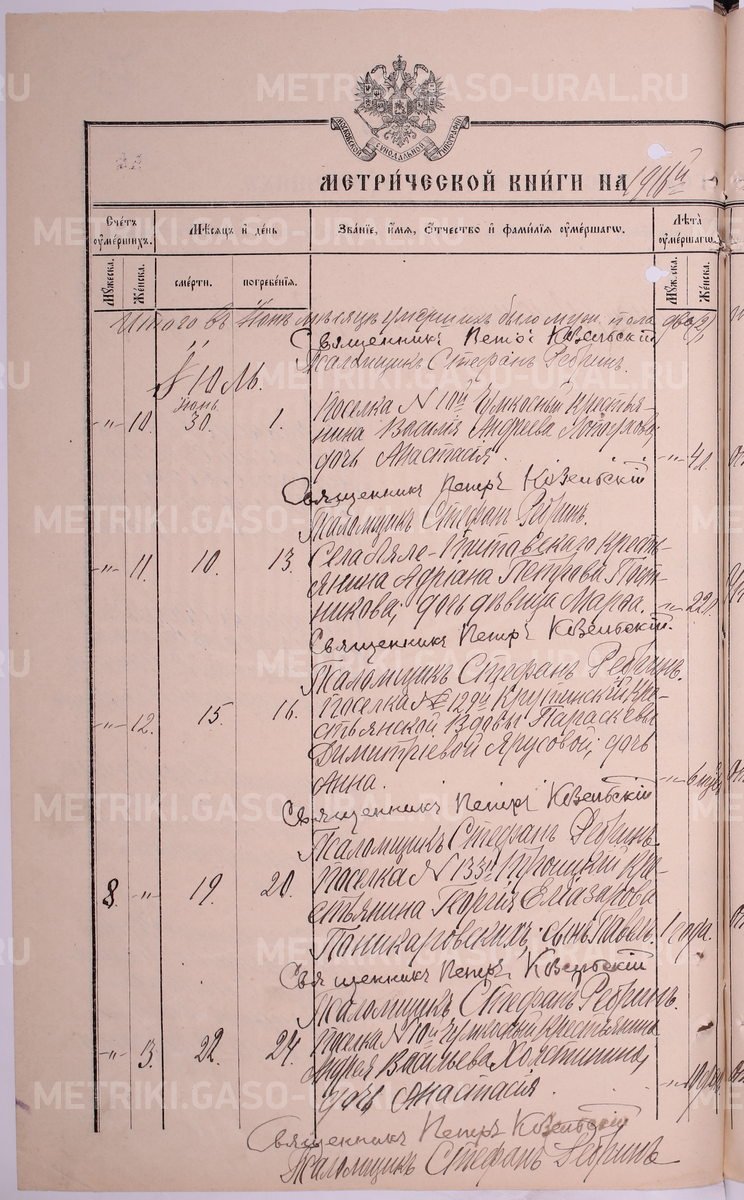 METRIKI.GASO-URAL.RU
МОСКОВСКОЙ СѴНОДАЛЬНОЙ ТИПОГРАФІИ
МЕТРИ́ЧЕСКОЙ КНИ́ГИ НА 1916й
Счетъ ѹмершихъ.
Мѣсяцъ и день
Званіе, имя, отчество и фамилія ѹмершагѡ.
Лѣта ѹмершагѡ.
Мѹжеска. Женска.
смерти.
погребенія.
Мѹжеска. Женска.
Итого въ Іюнѣ мѣсяцѣ умершихъ было муж. пола два /2/
Священникъ Петръ Козельскій
Псаломщикъ Стефанъ Ребринъ.
Іюль.
Іюнь
-"- 10. 30. 1. Поселка № 10й крестья-
нина Василія Андреева
дочь Анастасія. -"- 4 л.
Священникъ Петръ Козельскій
Псаломщикъ Стефанъ Ребринъ.
-"- 11. 10. 13. Села кресть-
янина Адріана Петрова
дочь дѣвица Марѳа. -"- 22 л.
Священникъ Петръ Козельскій.
Псаломщикъ Стефанъ Ребринъ.
-"- 12. 15. 16. Поселка № 129й Крутинскій, кре-
стьянской вдовы Параскевы
Димитріевой Ярусовой; дочь
Анна. -"- 6
Священникъ Петръ Козельскій
Псаломщикъ Стефанъ Ребринъ
8. -"- 19. 20. Поселка № 133й Троицкій кре-
стьянина Георгія Елазарова
Поникаровскихъ; сынъ Павелъ. 1 года.
Священникъ Петръ Козельскій
Псаломщикъ Стефанъ Ребринъ.
-"- 13. 22. 24. Поселка № 10й крестьянина
Васильева
дочь Анастасія. -"- 10
Священникъ Петръ Козельскій
Псаломщикъ Стефанъ Ребринъ